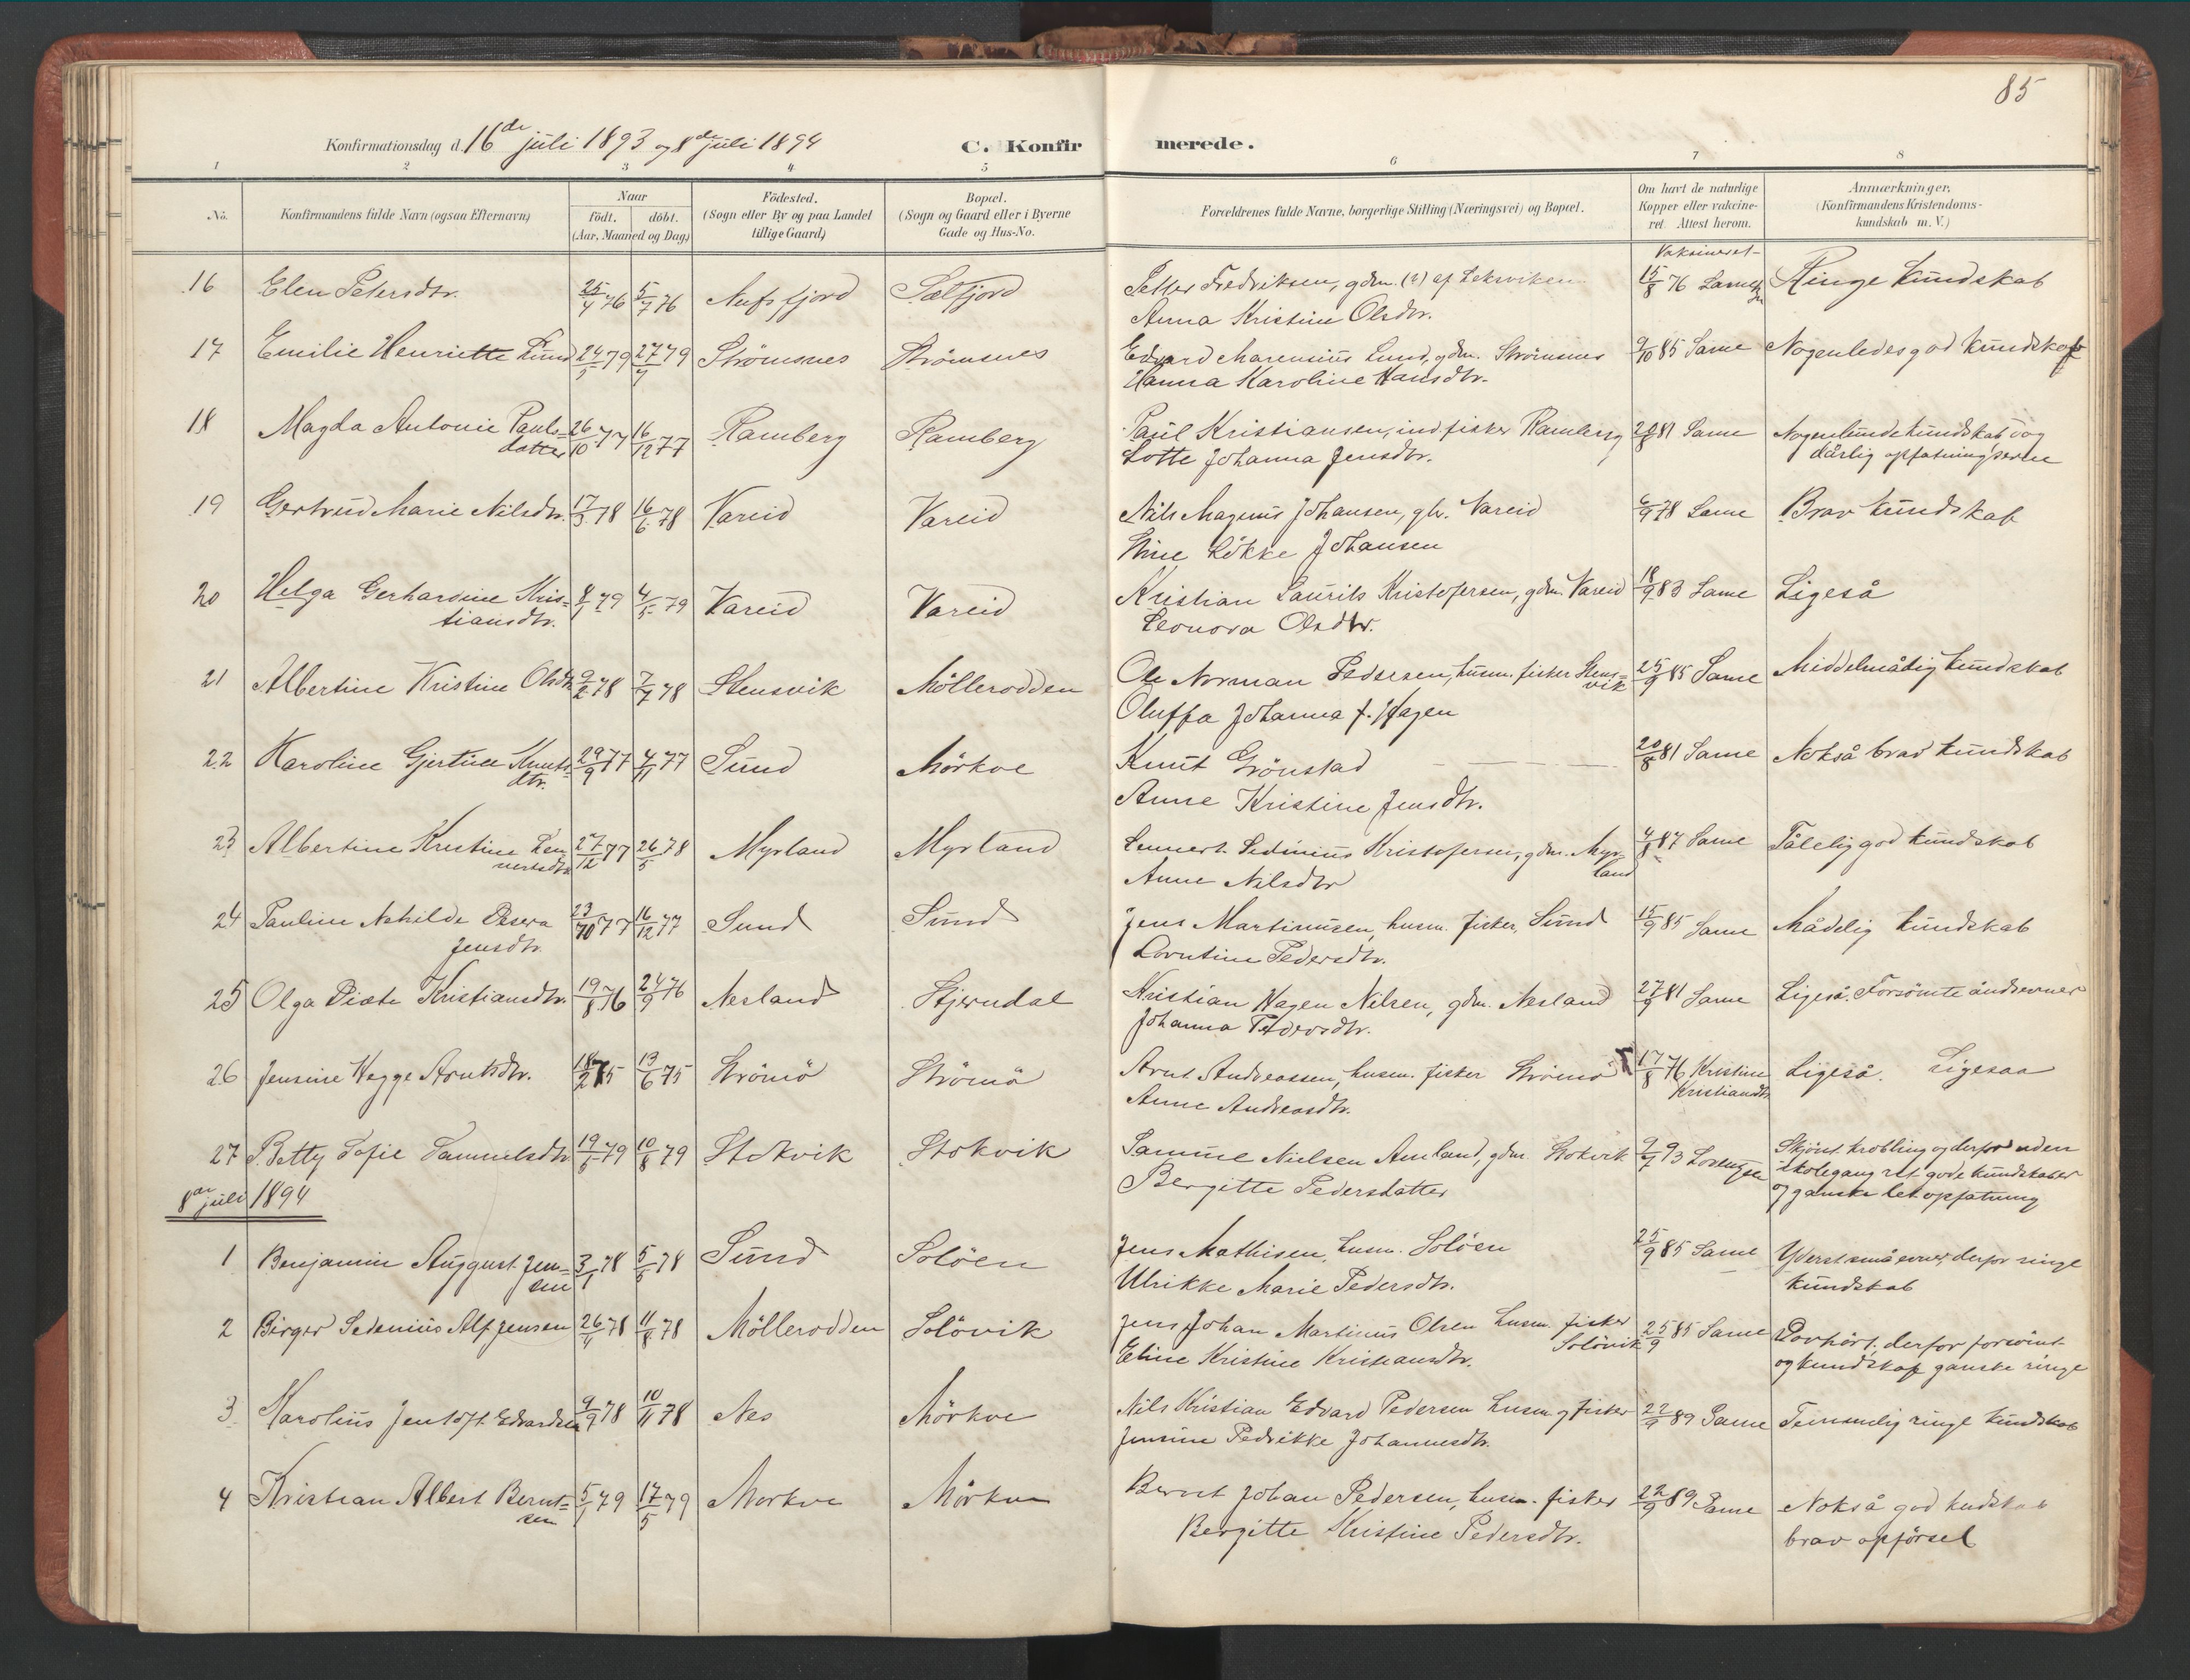 85
Konfirmationsdag d. 16de juli 1893 og 8de juli 1894
C. Konfirmerede.
1 2 3 4 5 6 7 8
No.
Konfirmandens fulde Navn (ogsaa Efternavn)
Naar
födt. döbt.
(Aar, Maaned og Dag)
Födested.
(Sogn eller By og paa Landet
tillige Gaard)
Bopæl.
(Sogn og Gaard eller i Byerne
Gade og Hus-No.
Forældrenes fulde Navne, borgerlige Stilling (Næringsvei) og Bopæl.
Om havt de naturlige
Kopper eller vakcine-
ret. Attest herom.
Anmærkninger.
(Konfirmandens Kristendoms-
kundskab m. V.)
Vaksineret
16 Elen Petersdtr. 25/4 76 5/7 76 Nufsfjord Sælfjord Petter Fredriksen, gdm. (?) af Lekviken 15/8 76 Ringe kundskab
Anna Kristine Olsdtr.
17 Emilie Henriette Lund 24/5 79 27/7 79 Strömsnes Strömsnes Edvard Marensius Lund, gdm. Strömsnes 9/10 85 Same Nogenledes god kundskap
Hanna Karoline Hansdtr.
18 Magda Antonie Pauls= 26/10 77 16/12 77 Ramberg Ramberg Paul Kristiansen, ind. fisker Ramberg 20/8 81 Same Nogenlunde kundskab og
datter Lotte Johanna Jensdtr. dårlig opfatningsevne
19 Gertrud Marie Nilsdtr. 17/3 78 16/6 78 Vareid Vareid Nils Magnus Johansen, gbr. Vareid 6/9 78 Same Brav kundskab
Stine Lökke Johansen
20 Helga Gerhardine Kris= 8/1 79 4/5 79 Vareid Vareid Kristian Laurits Kristofersen, gdm. Vareid 18/9 83 Same Ligeså
tiansdtr. Leonora Olsdtr.
21 Albertine Kristine Olsdtr 9/2 78 7/7 78 Stensvik Möllerodden Ole Norman Pedersen, husm. fisker Stens= 25/9 85 Same Middelmådig kundskab
vik
Oluffa Johanna f. Hagen
22 Karoline Gjertine Knuts 29/9 77 4/11 77 Sund Mörkve Knut Grönstad 20/8 81 Same Nokså brav kundskab
dtr. Anne Kristine Jensdtr.
23 Albertine Kristine Len 27/12 77 26/5 78 Myrland Myrland Lennert Sedinius Kristofersen, gdm. Myr= 4/8 87 Same Tålelig god kundskab
nertsdtr land
Anne Nilsdtr
24 Pauline Nekilde Desera 23/10 77 16/12 77 Sund Sund Jens Martinusen, husm. fisker, Sund 15/9 85 Same Mådelig kundskab
Jensdtr. Lorntine Pedersdtr.
25 Olga Diæte Kristiansdtr. 19/8 76 24/9 76 Nesland Stjerndal Kristian Hagen Nilsen, gdm. Nesland 27/9 81 Same Ligeså. Forsömte åndsevner
Johanna Pedersdtr.
26 Jensine Hegge Arntsdtr. 18/2 75 13/6 75 Strömö Strömö Arnt Andreassen, husm. fisker Strömö 17/8 76 Kristine Ligeså. Ligesaa
Kristiansdtr
Anne Andreasdtr.
27 Betty Sofie Samuelsdtr 19/5 79 10/8 79 Stokvik Stokvik Samuel Nielsen Amland, gdm. Stokvik 9/7 93 Lorentzen Skjönt krøbling og derfor uden
Bergitte Pedersdatter skolegang ret gode kundskaber
og ganske let opfatning
8de juli 1894
1 Benjamin August Jen= 3/1 78 5/5 78 Sund Solöen Jens Mathisen, husm. Solöen 25/9 85 Same Yderst små evner, derfor ringe
sen Ulrikke Marie Pedersdtr. kundskab
2 Birger Sedenius Alf Jensen 26/4 78 11/8 78 Möllerodden Solövik Jens Johan Martinus Olsen husm. fisker 25/9 85 Same Tovhört, derfor forsömt
Solövik
Eline Kristine Kristiansdtr. og kundskap ganske ringe
3 Karolius Jentoft Edvardsen 9/9 78 10/11 78 Nes Mörkve Nils Kristian Edvard Pedersen husm og fisker 22/9 89 Same Temmelig ringe kundskab
Jensine Pedrikke Johannesdtr.
4 Kristian Albert Bernt= 5/1 79 17/5 79 Morkve Mörkve Bernt Johan Pedersen, husm. fisker 22/9 89 Same Nokså god kudskab
sen Bergitte Kristine Pedersdtr. brav opförsel